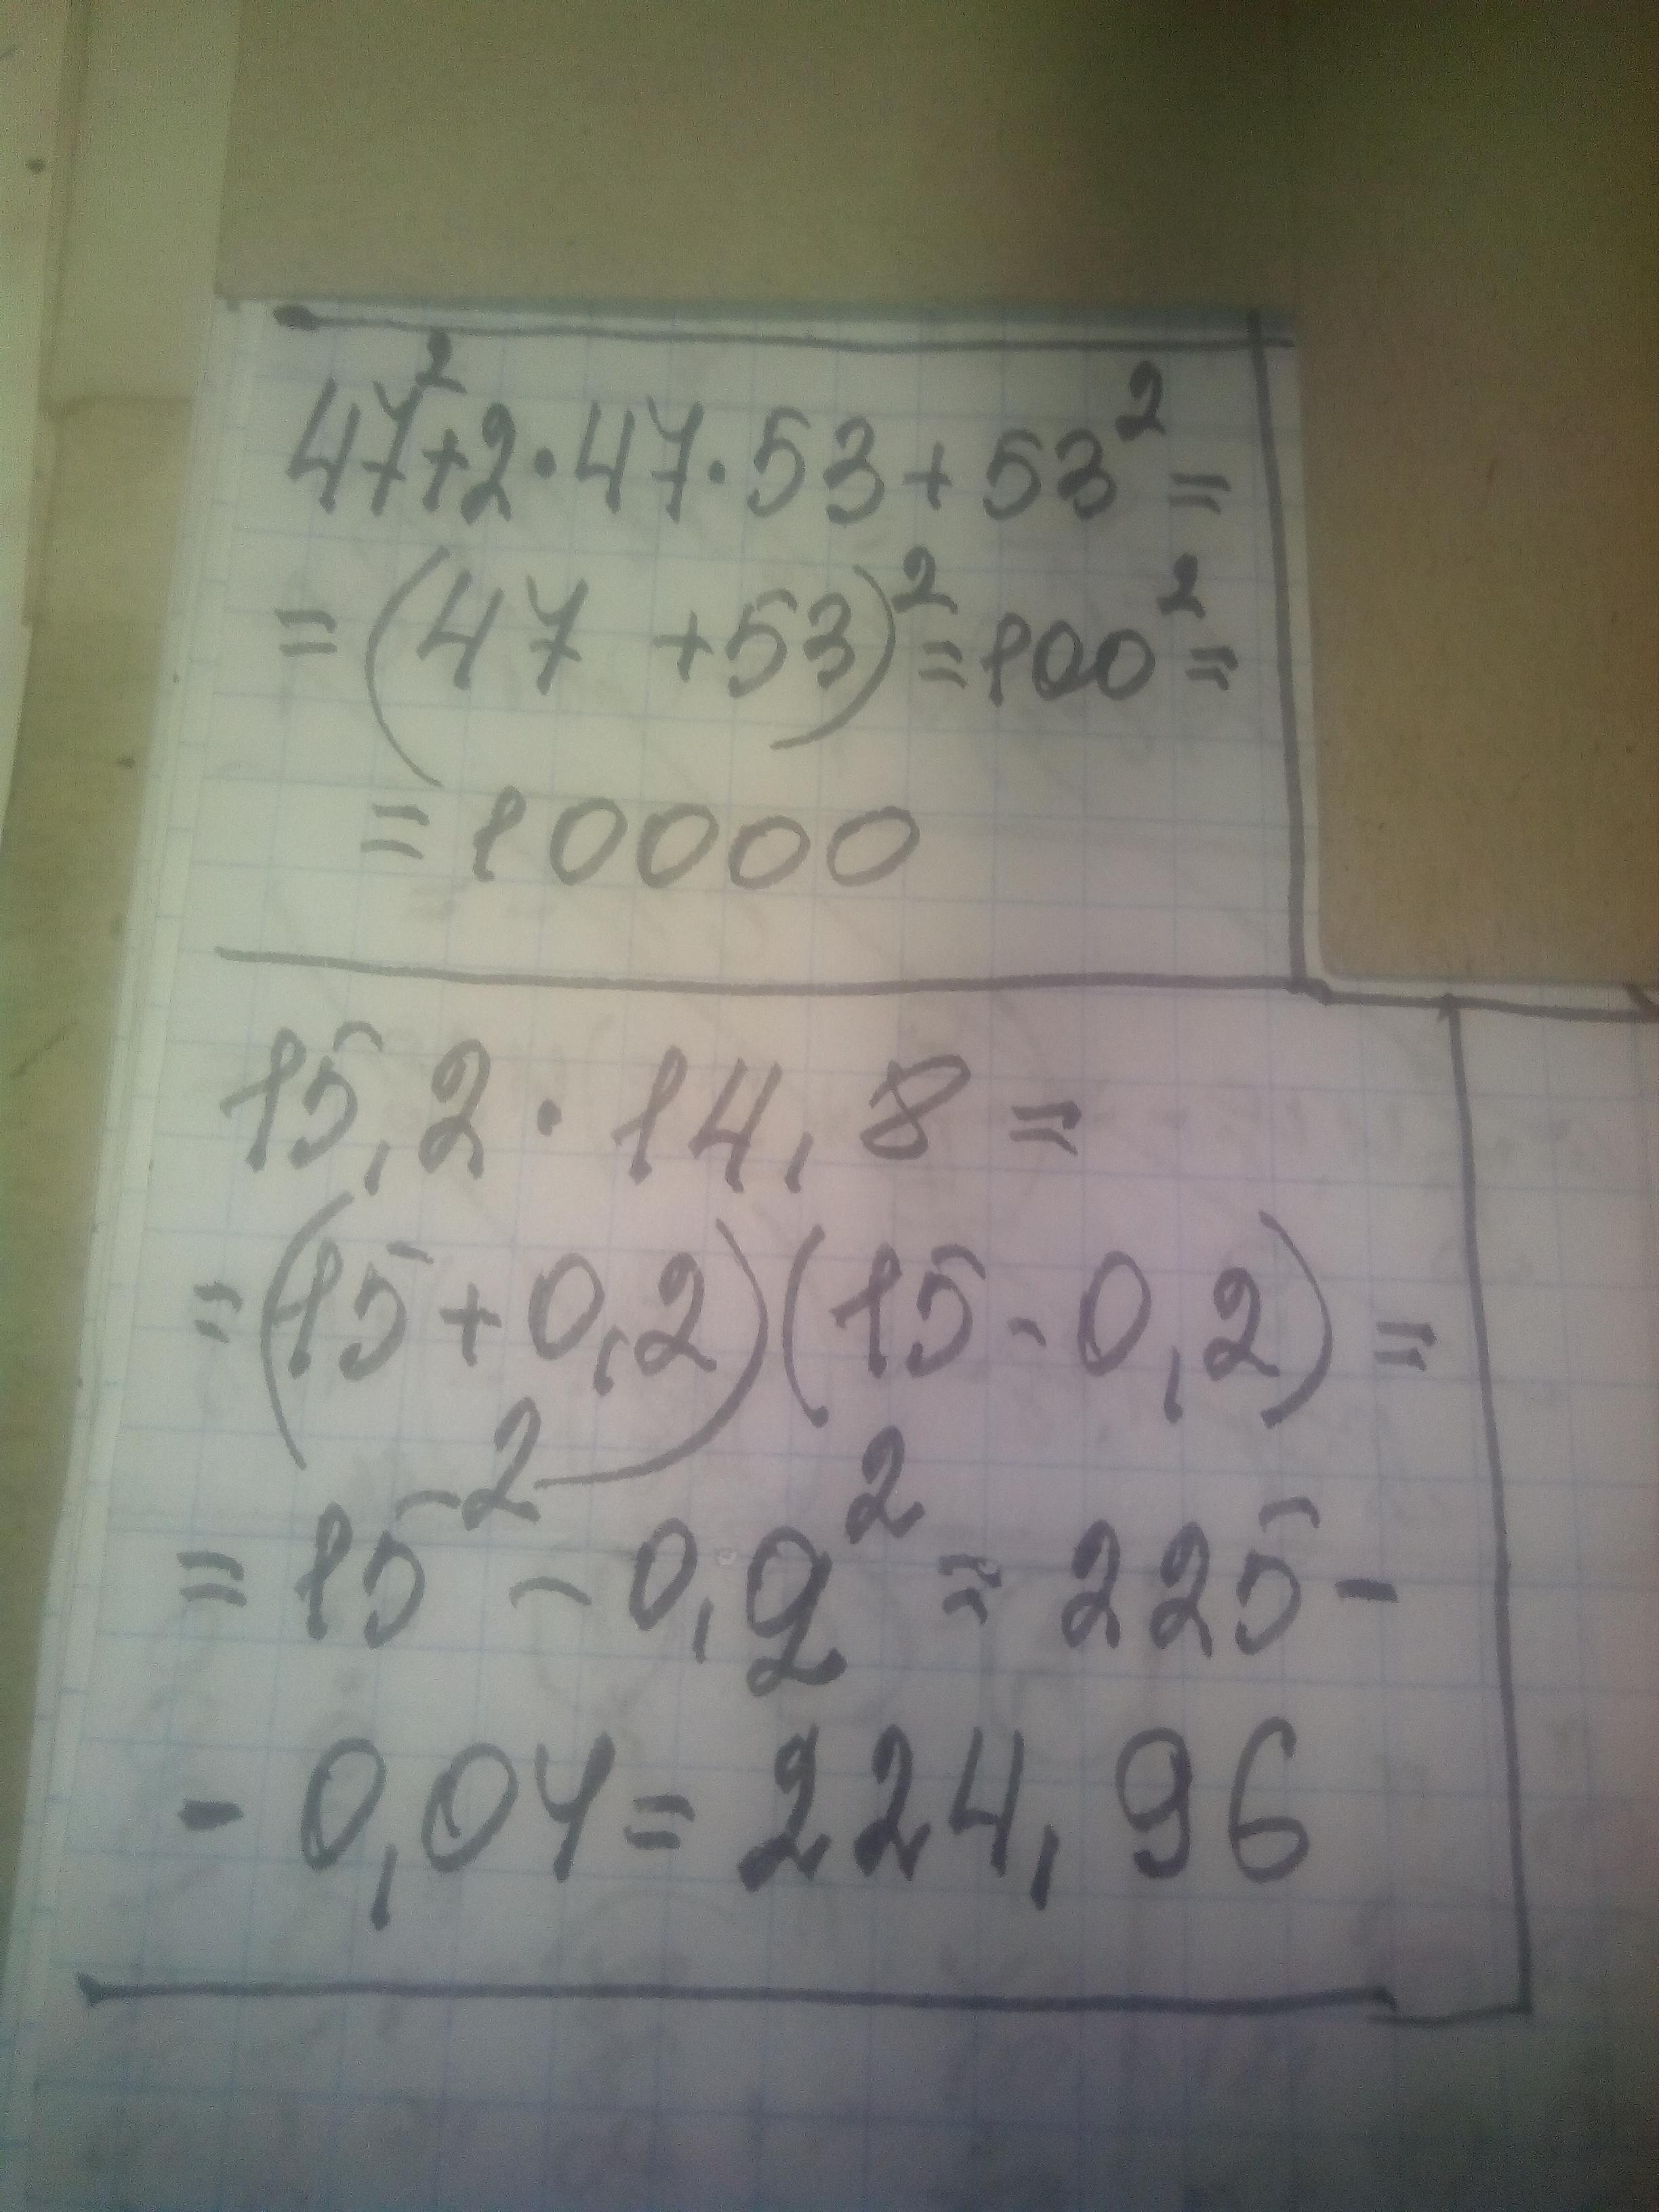 47²+2·47·53+53²=
=(47 +53)²=100²=
=10000
15,2·14,8=
=(15+0,2)(15-0,2)=
=15²-0,2²=225-
-0,04=224,96